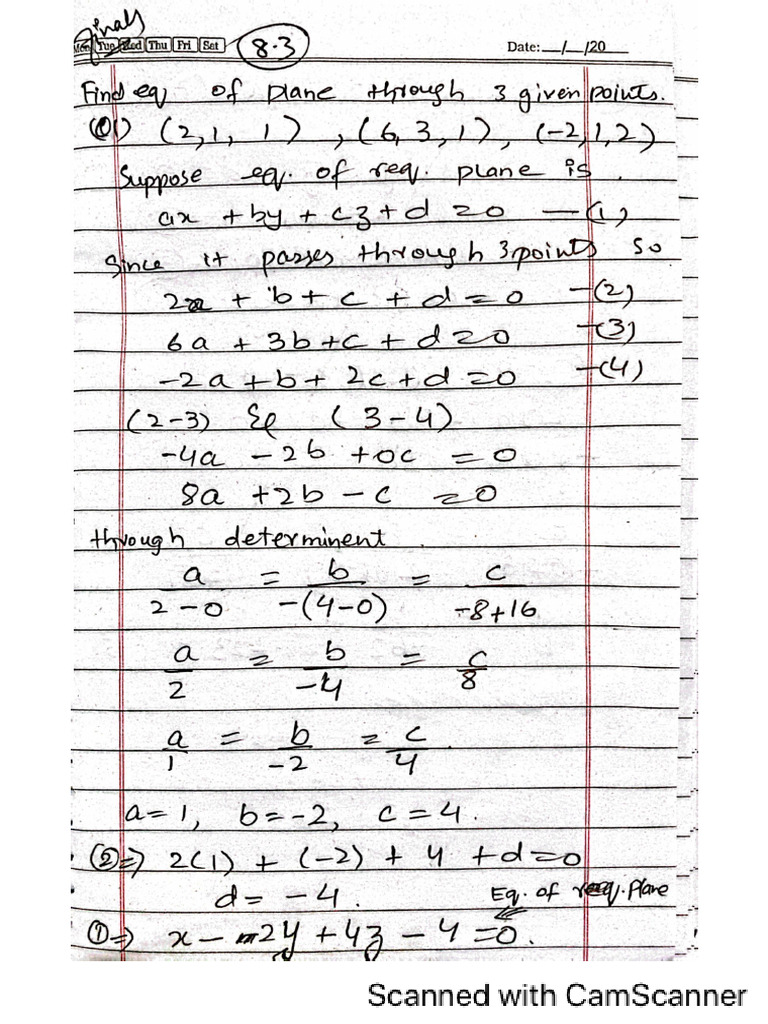 finals
Mon Tue Wed Thu Fri Sat 8.3 Date: __/__/20__
Find eq of plane through 3 given points.
Q1) (2,1,1), (6,3,1), (-2,1,2)
Suppose eq. of req. plane is.
ax + by + cz + d = 0 —(1)
Since it passes through 3 points so
2a + b + c + d = 0 —(2)
6a + 3b + c + d = 0 —(3)
-2a + b + 2c + d = 0 —(4)
(2-3) & (3-4)
-4a - 2b + 0c = 0
8a + 2b - c = 0
through determinent.
a/2-0 = b/-(4-0) = c/-8+16
a/2 = b/-4 = c/8
a/1 = b/-2 = c/4.
a=1, b=-2, c=4.
(2)⇒ 2(1) + (-2) + 4 + d = 0
d = -4. Eq. of req. plane
(1)⇒ x - 2y + 4z - 4 = 0.
Scanned with CamScanner